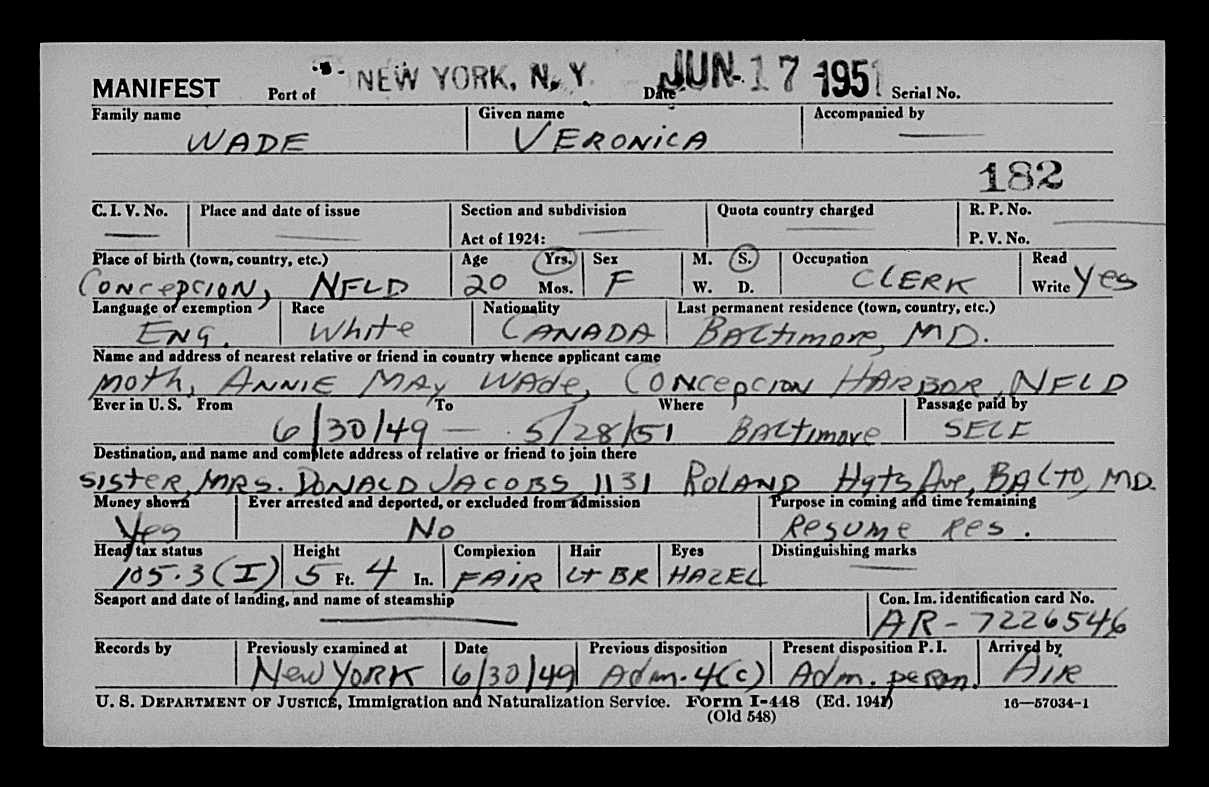 MANIFEST Port of NEW YORK, N. Y. Date JUN 17 1951 Serial No.
Family name Given name Accompanied by
WADE VERONICA —
182
C. I. V. No. Place and date of issue Section and subdivision Quota country charged R. P. No.
— — Act of 1924: — — P. V. No. —
Place of birth (town, country, etc.) Age Yrs. Sex M. S. Occupation Read
Concepcion, NFLD 20 Mos. F W. D. CLERK Write Yes
Language of exemption Race Nationality Last permanent residence (town, country, etc.)
ENG. White CANADA BALtimore, MD.
Name and address of nearest relative or friend in country whence applicant came
moth, ANNIE MAY WADe, CONcepcion HARBOR, NFLD
Ever in U. S. From To Where Passage paid by
6/30/49 — 5/28/51 BALtimore SELF
Destination, and name and complete address of relative or friend to join there
SISTER, MRS. DONALD JACOBS 1131 ROLAND Hgts Ave, BALTO, MD.
Money shown Ever arrested and deported, or excluded from admission Purpose in coming and time remaining
Yes No Resume Res.
Head tax status Height Complexion Hair Eyes Distinguishing marks
105.3 (I) 5 Ft. 4 In. FAIR LT BR HAZEL —
Seaport and date of landing, and name of steamship Con. Im. identification card No.
— AR-7226546
Records by Previously examined at Date Previous disposition Present disposition P. I. Arrived by
New YORK 6/30/49 Adm. 4(c) Adm. perm. AIR
U. S. DEPARTMENT OF JUSTICE, Immigration and Naturalization Service. Form I-448 (Ed. 1941) 16—57034-1
(Old 548)